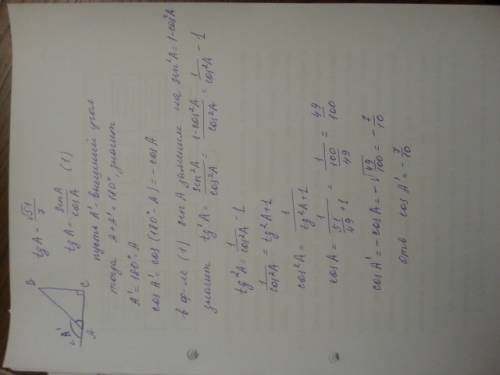 B
A'
A
C
tgA = √51/7
tgA = sinA/cosA (1)
пусть A' - внешний угол
тогда A + A' = 180°, значит
A' = 180° - A
cosA' = cos(180° - A) = -cosA
в ф-ле (1) sinA заменим на sin²A = 1-cos²A
значит tg²A = sin²A/cos²A = 1-cos²A/cos²A = 1/cos²A - 1
tg²A = 1/cos²A - 1
1/cos²A = tg²A + 1
cos²A = 1/tg²A+1
cosA = 1/51/49+1 = 1/100/49 = 49/100
cosA' = -cosA = -√49/100 = -7/10
отв cosA' = -7/10